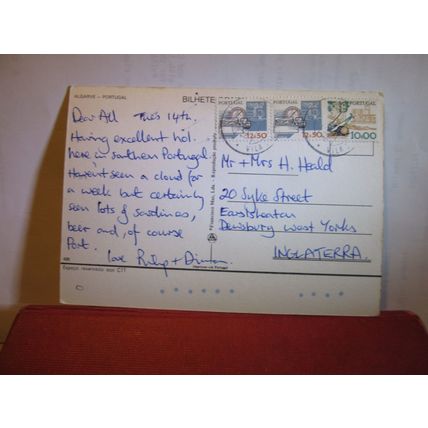 ALGARVE - PORTUGAL
BILHETE
PORTUGAL
12$50
PORTUGAL
12$50
PORTUGAL
10$00
Dear All Tues 14th.
Having excellent hol.
here in southern Portugal.
Haven't seen a cloud for
a week but certainly
seen lots of sardines,
beer and, of course
Port.
love Philip +
Mr + Mrs H. Heald
20 Syke Street
Eastsheaton
Dewsbury West Yorks
INGLATERRA.
Espaço reservado aos CTT